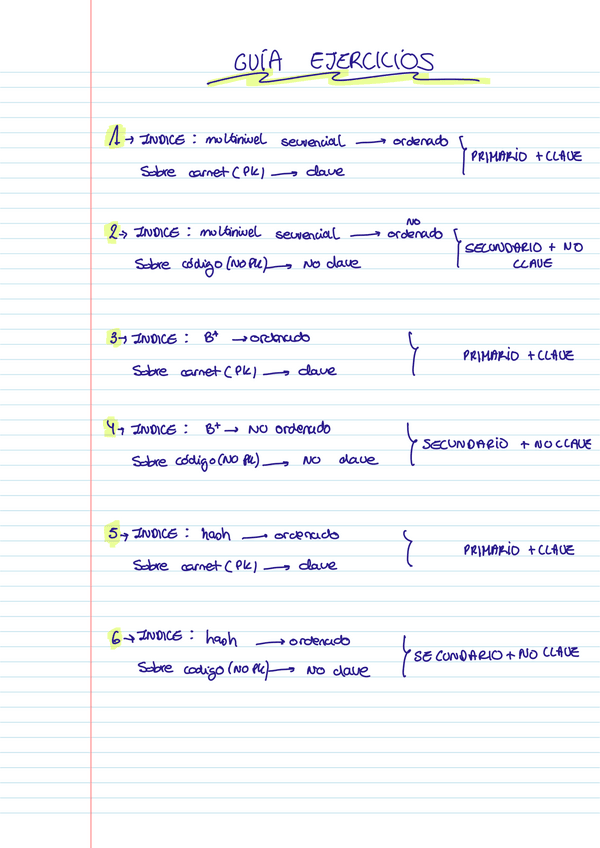 GUÍA EJERCICIOS
1 → INDICE : multinivel secuencial → ordenado } PRIMARIO + CLAVE
Sobre carnet (PK) → clave
2 → INDICE : multinivel secuencial → NO ordenado } SECUNDARIO + NO CLAVE
Sobre código (NO PK) → NO clave
3 → INDICE : B+ → ordenado } PRIMARIO + CLAVE
Sobre carnet (PK) → clave
4 → INDICE : B+ → NO ordenado } SECUNDARIO + NO CLAVE
Sobre código (NO PK) → NO clave
5 → INDICE : hash → ordenado } PRIMARIO + CLAVE
Sobre carnet (PK) → clave
6 → INDICE : hash → ordenado } SECUNDARIO + NO CLAVE
Sobre codigo (NO PK) → NO clave